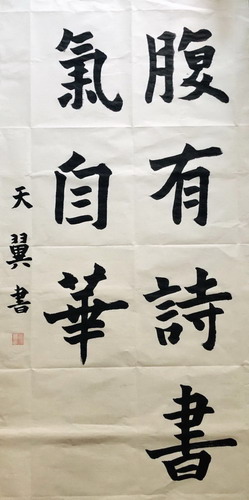 腹有詩書
氣自華
天翼書